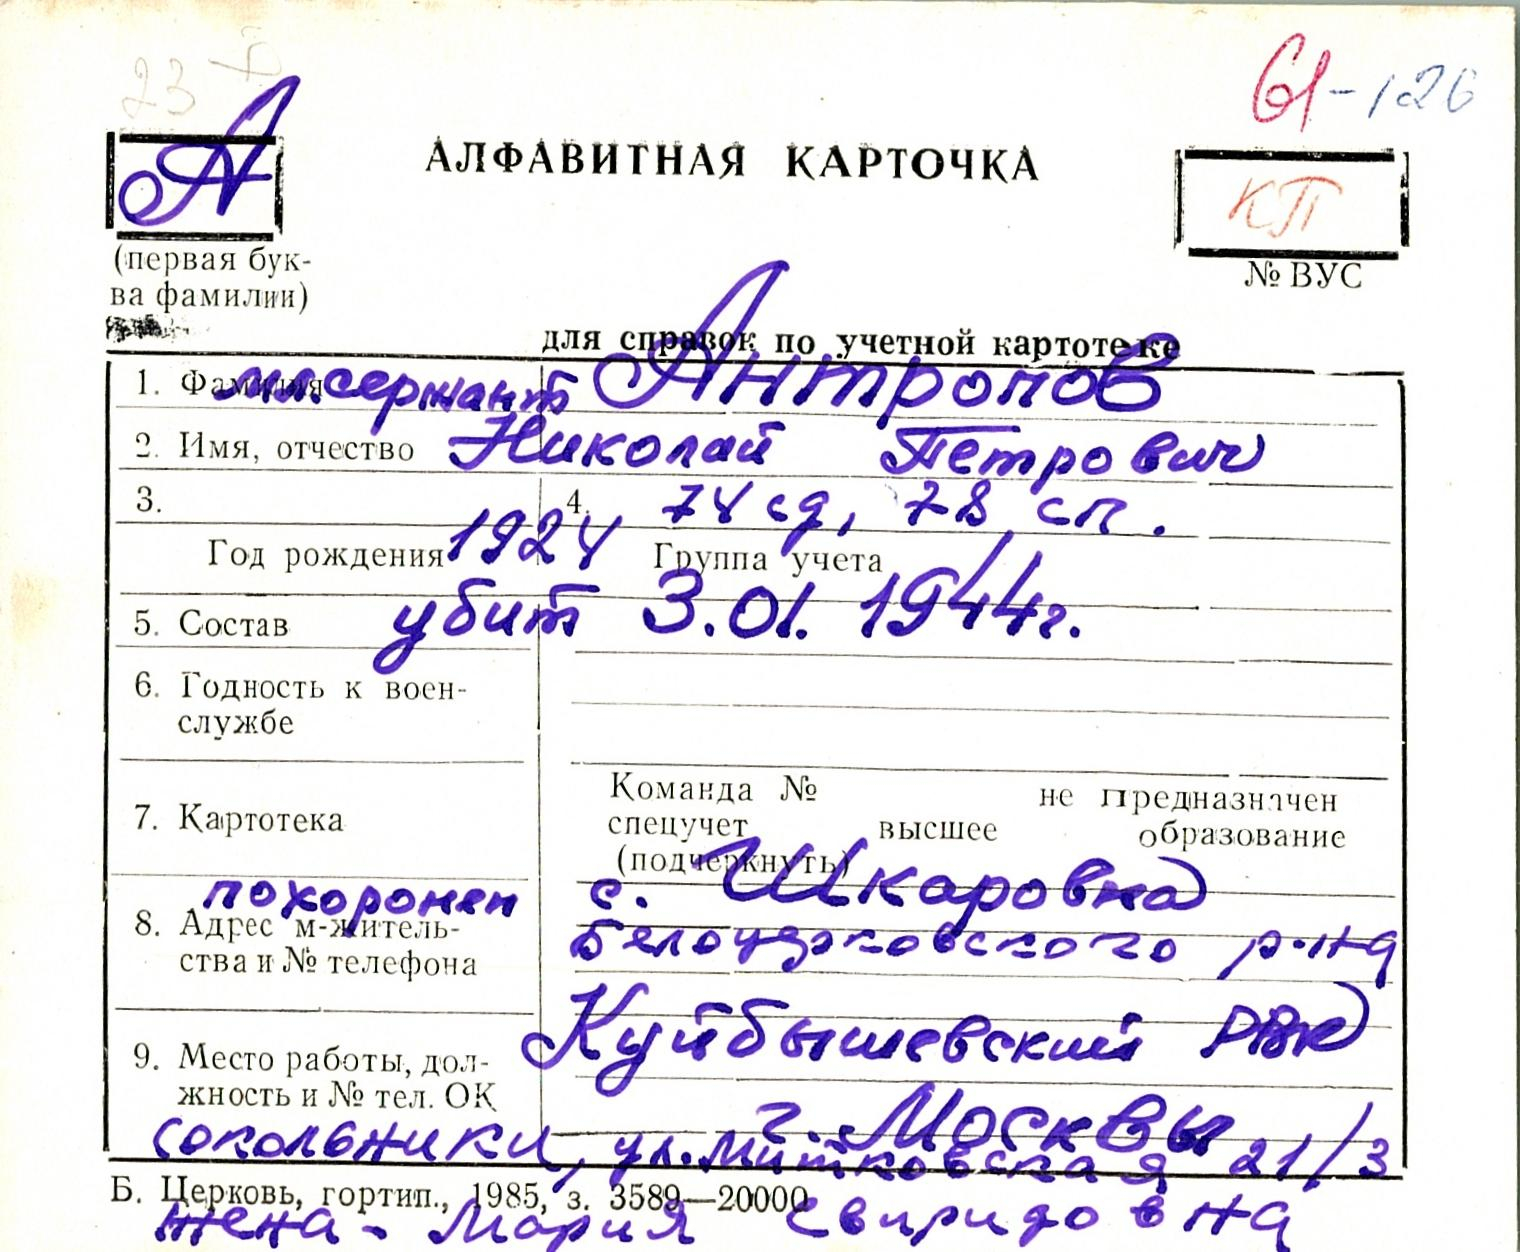 23
61-126
А
АЛФАВИТНАЯ КАРТОЧКА
КП
(первая бук-
ва фамилии)
№ ВУС
для справок по учетной картотеке
1. Фамилия мл. сержант Антропов
2. Имя, отчество Николай Петрович
3. 4. 74 сд, 78 сп.
Год рождения 1924 Группа учета
5. Состав убит 3.01.1944г.
6. Годность к воен-
службе
7. Картотека
Команда № не предназначен
спецучет высшее образование
(подчеркнуть)
похоронен с. Шкаровка
8. Адрес м-житель-
ства и № телефона
Белоцерковского р-на
Куйбышевский РВК
9. Место работы, дол-
жность и № тел. ОК
г. Москвы
Сокольники, ул. Митьковская 21/3
Б. Церковь, гортип., 1985, з. 3589—20000
жена - Мария Свиридовна